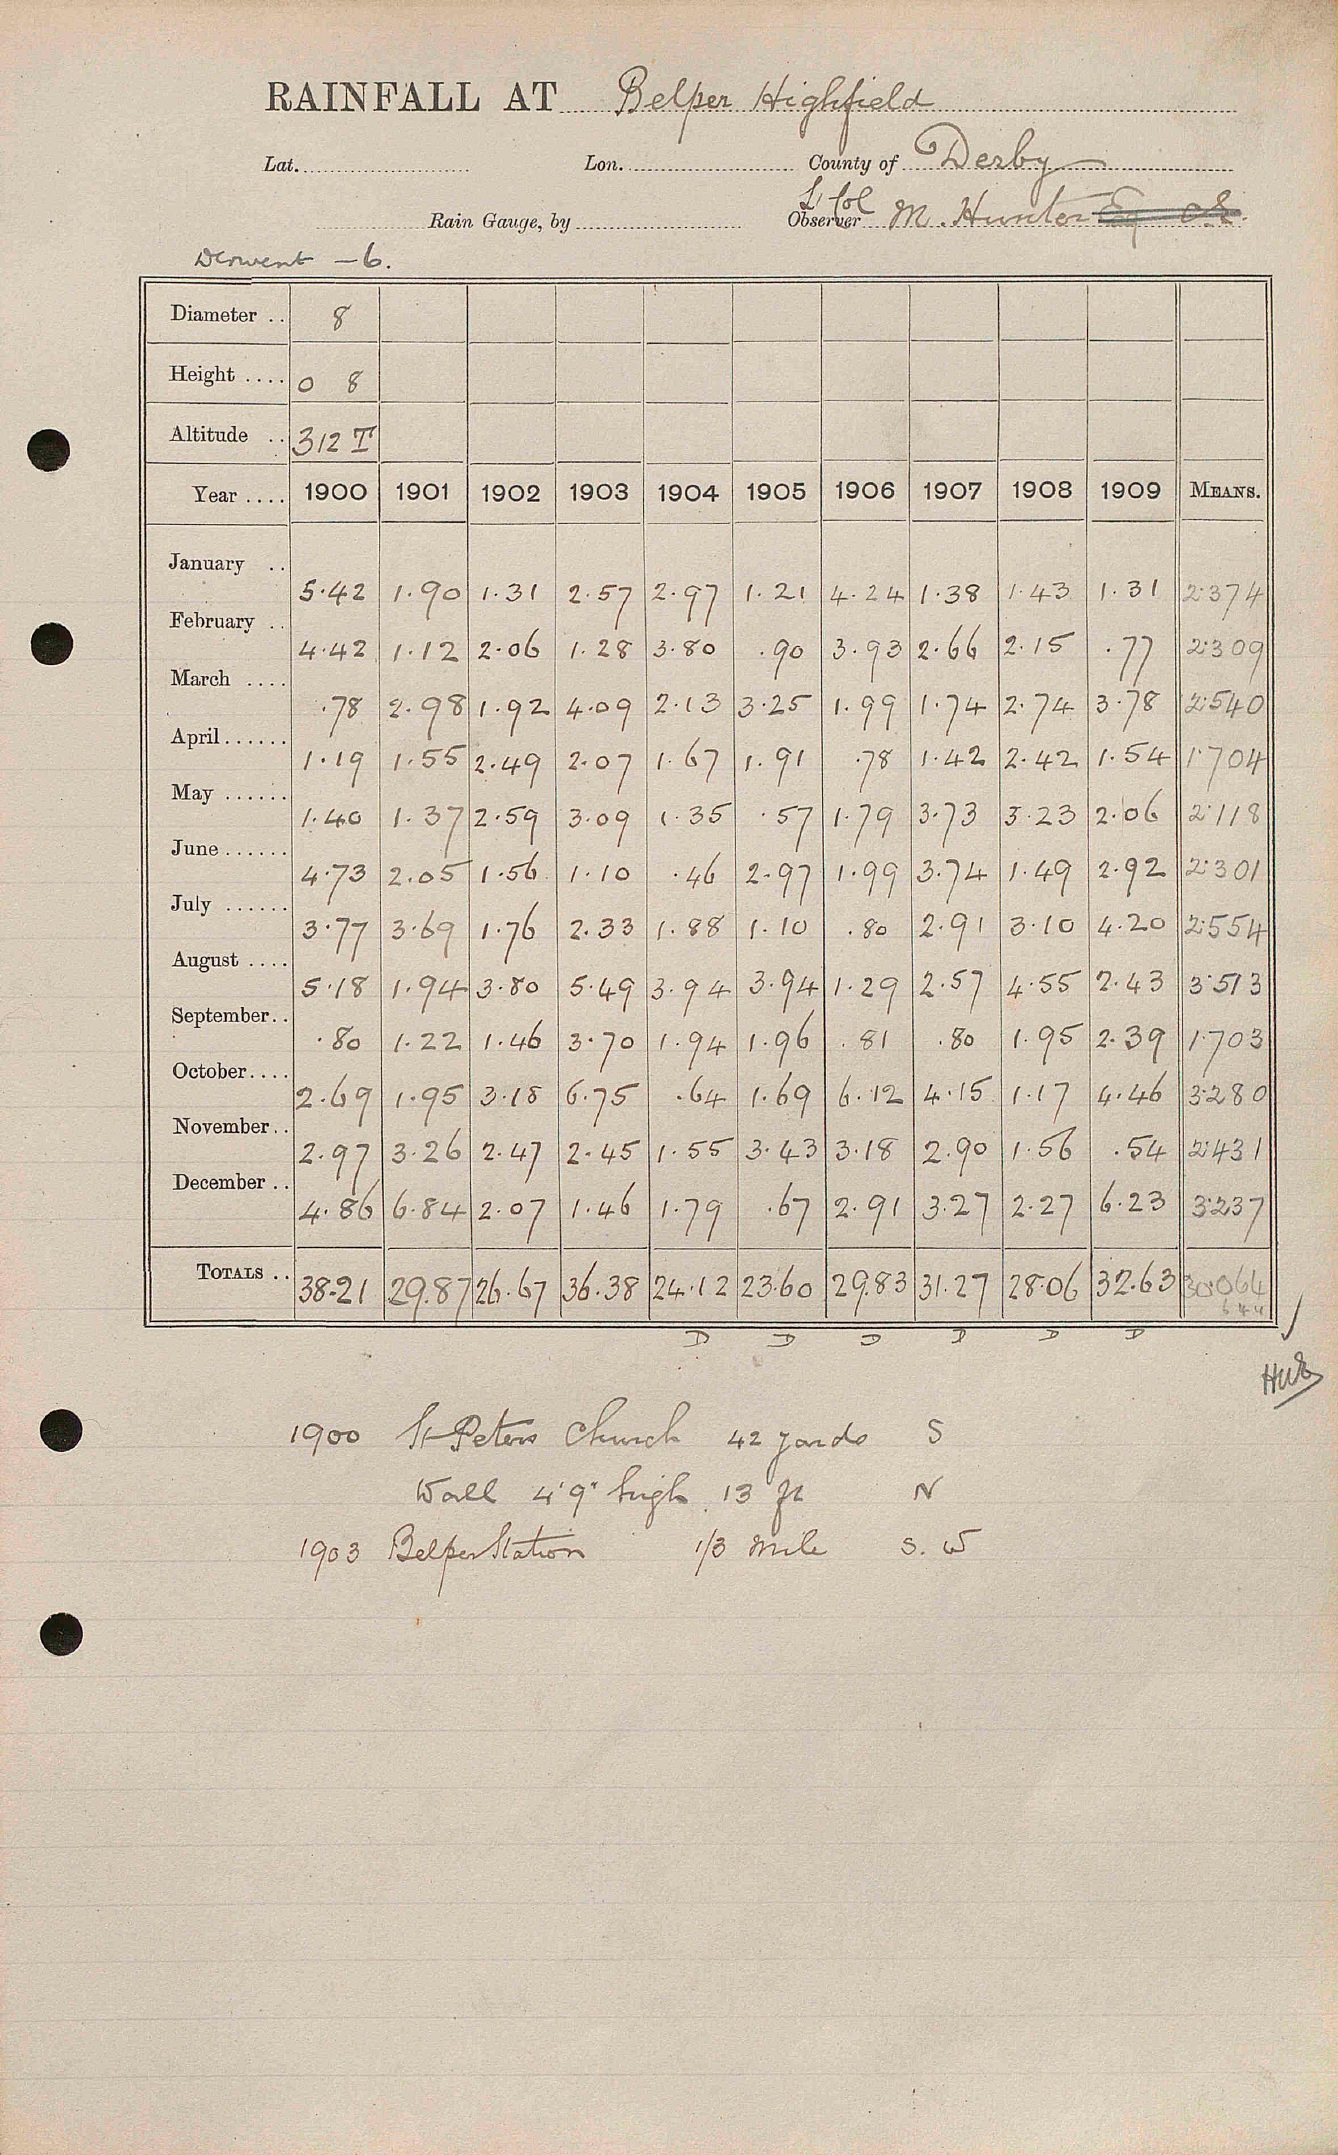 RAINFALL AT Belper Highfield
Lat. Lon. County of Derby
Rain Gauge, by Observer Lt Col M. Hunter
Derwent - 6.
Diameter .. 8
Height .... 0 8
Altitude .. 312 T
Year .... 1900 1901 1902 1903 1904 1905 1906 1907 1908 1909 MEANS.
January .. 5.42 1.90 1.31 2.57 2.97 1.21 4.24 1.38 1.43 1.31 2.374
February .. 4.42 1.12 2.06 1.28 3.80 .90 3.93 2.66 2.15 .77 2.309
March .... .78 2.98 1.92 4.09 2.13 3.25 1.99 1.74 2.74 3.78 2.540
April...... 1.19 1.55 2.49 2.07 1.67 1.91 .78 1.42 2.42 1.54 1.704
May ...... 1.40 1.37 2.59 3.09 1.35 .57 1.79 3.73 3.23 2.06 2.118
June...... 4.73 2.05 1.56 1.10 .46 2.97 1.99 3.74 1.49 2.92 2.301
July ...... 3.77 3.69 1.76 2.33 1.88 1.10 .80 2.91 3.10 4.20 2.554
August .... 5.18 1.94 3.80 5.49 3.94 3.94 1.29 2.57 4.55 2.43 3.513
September.. .80 1.22 1.46 3.70 1.94 1.96 .81 .80 1.95 2.39 1.703
October.... 2.69 1.95 3.18 6.75 .64 1.69 6.12 4.15 1.17 4.46 3.280
November.. 2.97 3.26 2.47 2.45 1.55 3.43 3.18 2.90 1.56 .54 2.431
December .. 4.86 6.84 2.07 1.46 1.79 .67 2.91 3.27 2.27 6.23 3.237
TOTALS .. 38.21 29.87 26.67 36.38 24.12 23.60 29.83 31.27 28.06 32.63 30.064
D D D D D D
1900 St Peters Church 42 yards S
Wall 4'9" high 13 ft N
1903 Belper Station 1/3 mile S. W